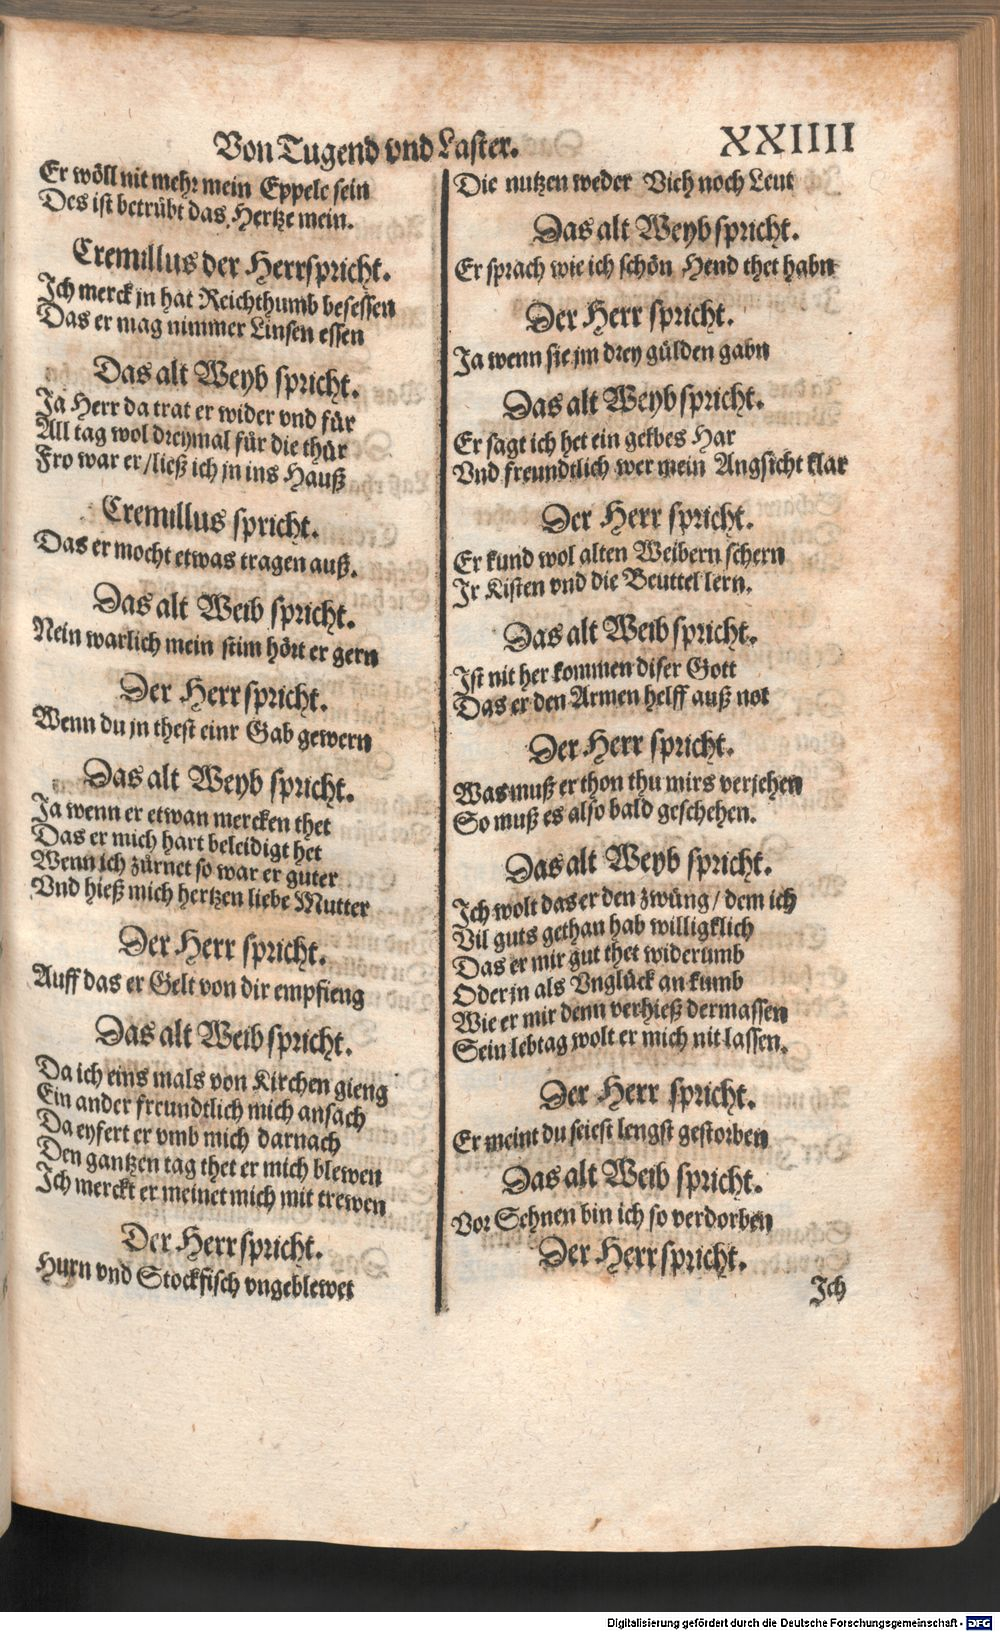 Von Tugend vnd Laster.
XXIIII
Er wöll nit mehr mein Eppele sein
Des ist betrübt das Hertze mein.
Cremillus der Herr spricht.
Ich merck jn hat Reichthumb besessen
Das er mag nimmer Linsen essen
Das alt Weyb spricht.
Ja Herr da trat er wider vnd für
All tag wol dreymal für die thür
Fro war er / ließ ich jn ins Hauß
Cremillus spricht.
Das er mocht etwas tragen auß.
Das alt Weib spricht.
Nein warlich mein stim hört er gern
Der Herr spricht.
Wenn du jn thest einr Gab gewern
Das alt Weyb spricht.
Ja wenn er etwan mercken thet
Das er mich hart beleidigt het
Wenn ich zürnet so war er guter
Vnd hieß mich hertzen liebe Mutter
Der Herr spricht.
Auff das er Gelt von dir empfieng
Das alt Weib spricht.
Da ich eins mals von Kirchen gieng
Ein ander freundtlich mich ansach
Da eyfert er vmb mich darnach
Den gantzen tag thet er mich blewen
Ich merckt er meinet mich mit trewen
Der Herr spricht.
Hurn vnd Stockfisch vngeblewet
Die nutzen weder Vieh noch Leut
Das alt Weyb spricht.
Er sprach wie ich schön Hend thet habn
Der Herr spricht.
Ja wenn sie jm drey gülden gabn
Das alt Weyb spricht.
Er sagt ich het ein gelbes Har
Vnd freundtlich wer mein Angsicht klar
Der Herr spricht.
Er kund wol alten Weibern schern
Ir Kisten vnd die Beuttel lern.
Das alt Weib spricht.
Ist nit her kommen diser Gott
Das er den Armen helff auß not
Der Herr spricht.
Was muß er thon thu mirs verjehen
So muß es also bald geschehen.
Das alt Weyb spricht.
Ich wolt das er den zwüng / dem ich
Vil guts gethan hab willigklich
Das er mir gut thet widerumb
Oder jn als Vnglück an kumb
Wie er mir denn verhieß dermassen
Sein lebtag wolt er mich nit lassen.
Der Herr spricht.
Er meint du seiest lengst gestorben
Das alt Weib spricht.
Vor Sehnen bin ich so verdorben
Der Herr spricht.
Ich
Digitalisierung gefördert durch die Deutsche Forschungsgemeinschaft - DFG